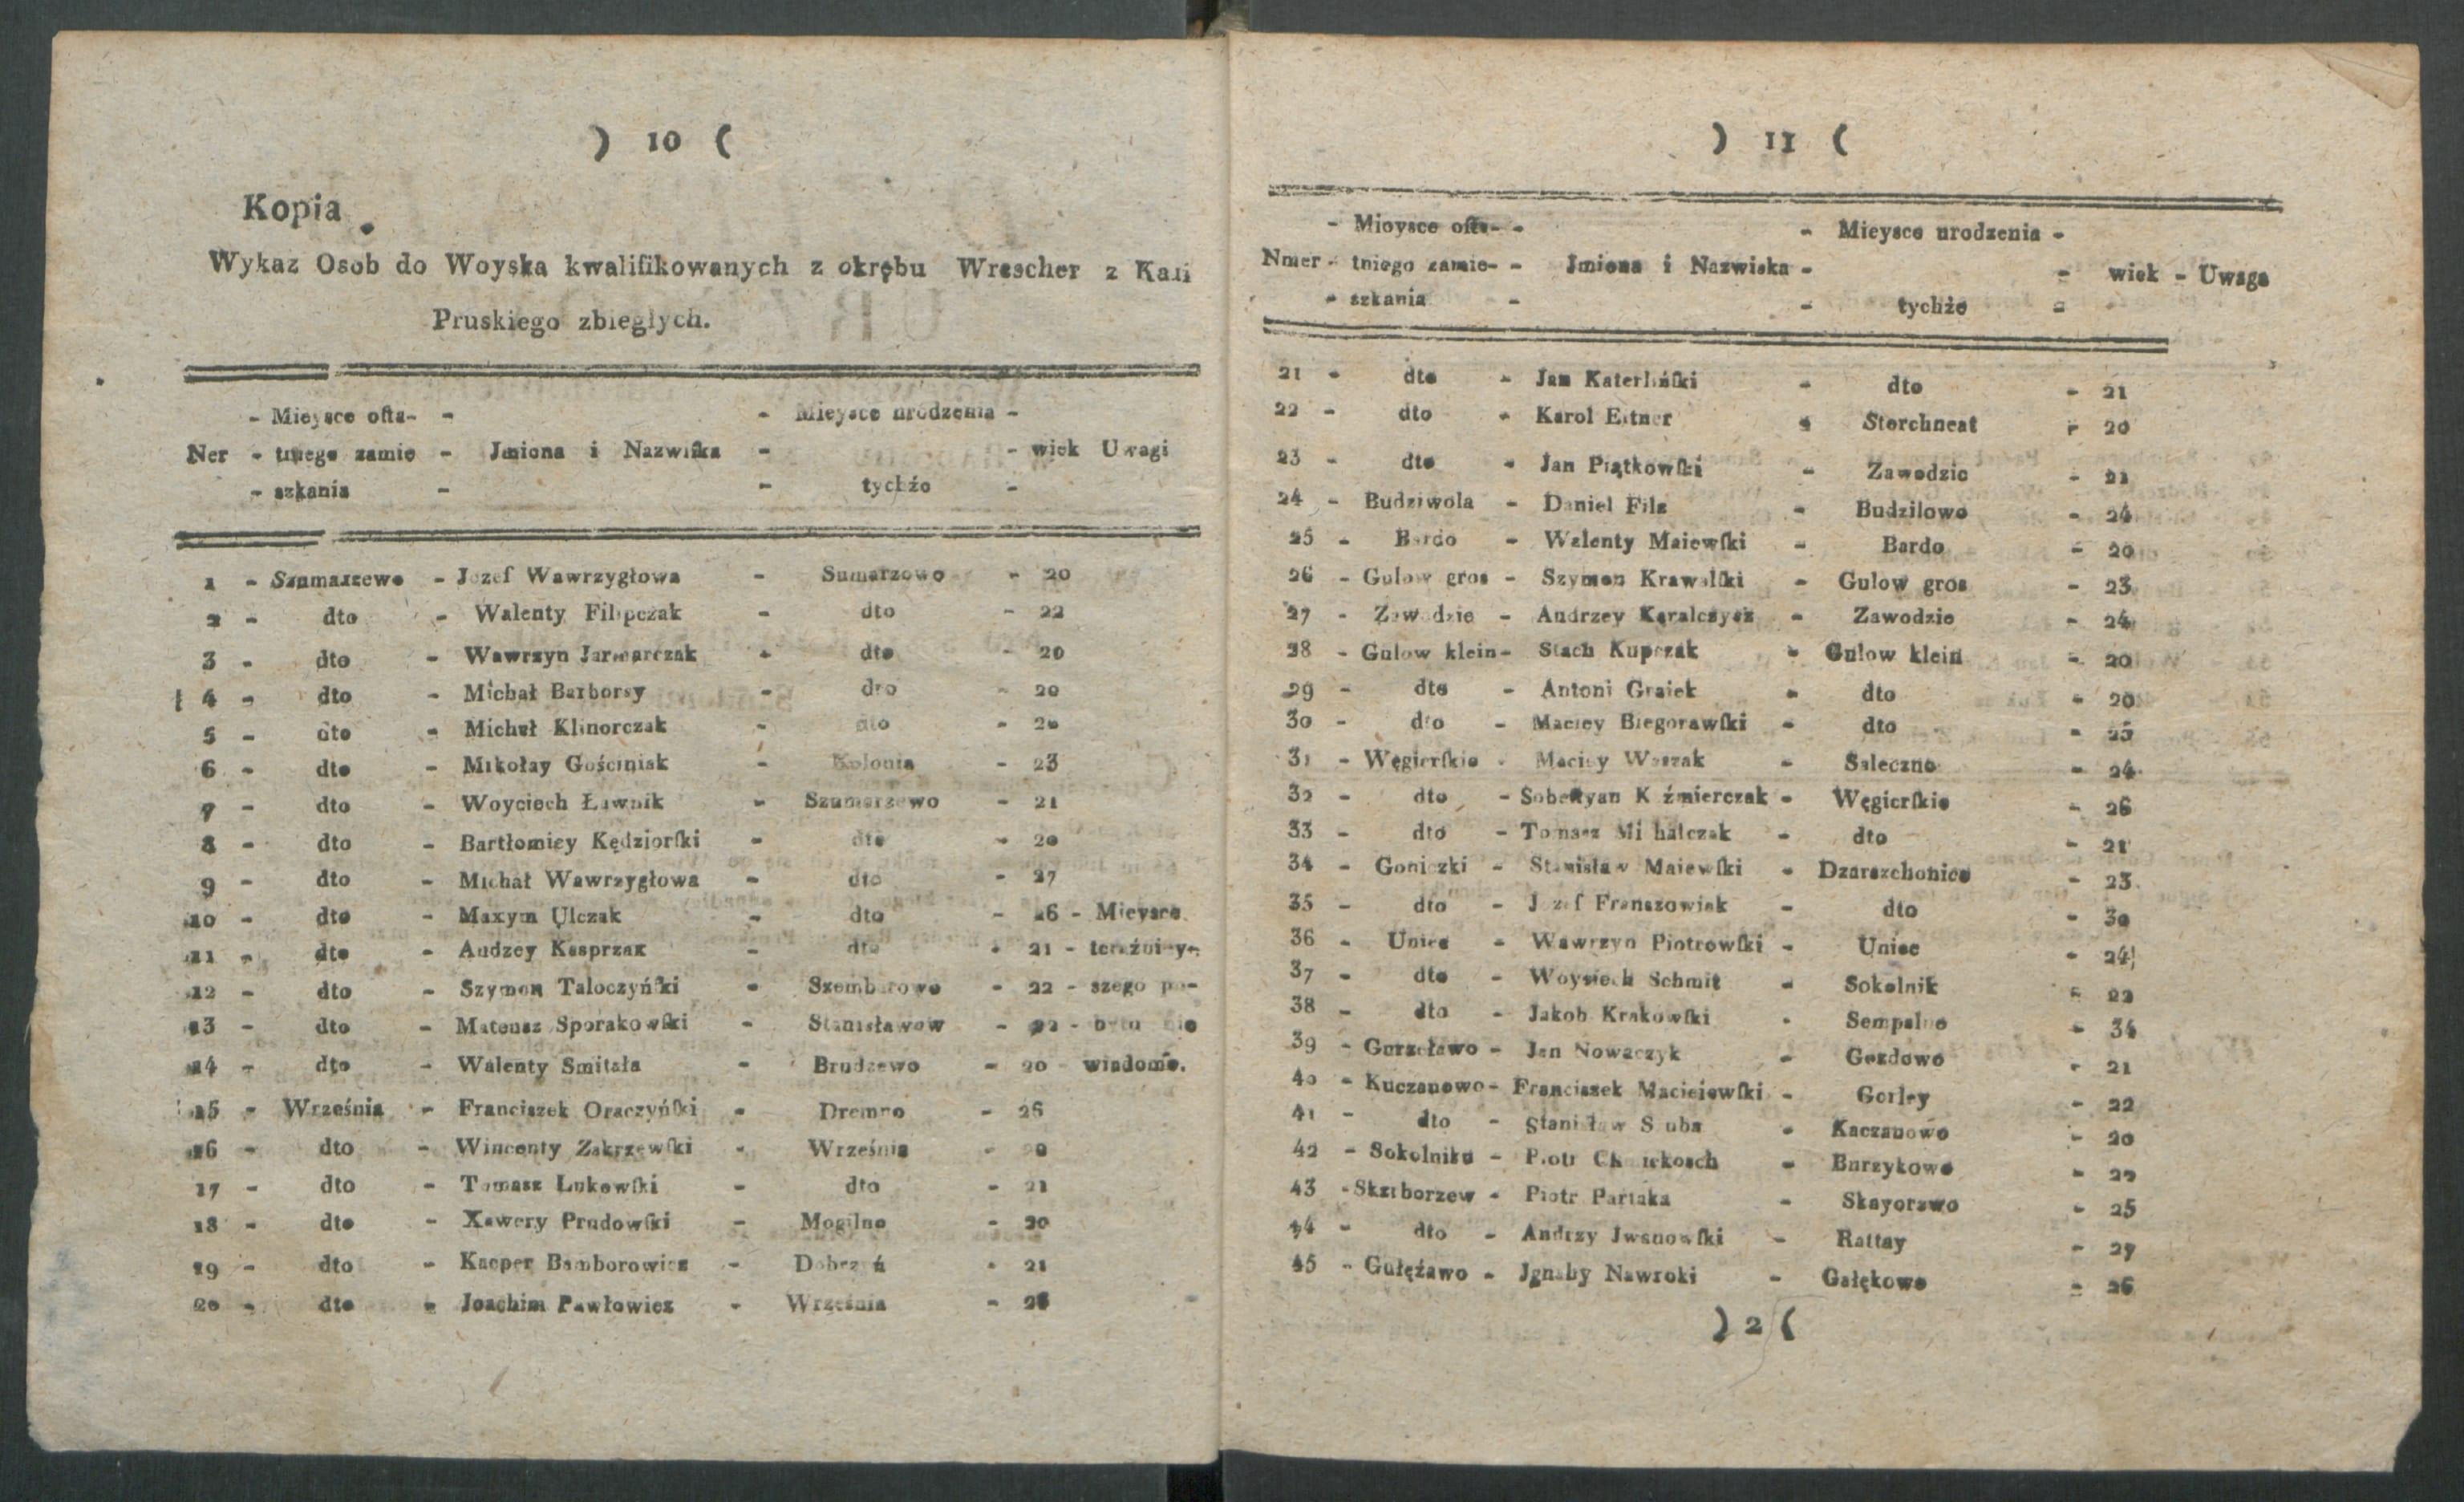 ) 10 (
Kopia
Wykaz Osob do Woyska kwalifikowanych z okrębu Wrescher z Kali
Pruskiego zbiegłych.
- Mieysce osta- - - Mieysce urodzenia -
Ner - tniego zamie - Jmiona i Nazwiſka - - wiek Uwagi
- szkania - - tychże -
1 - Szumarzewo - Jozef Wawrzygłowa - Sumarzowo - 20
2 - dto - Walenty Filipczak - dto - 22
3 - dto - Wawrzyn Jarmarczak - dto - 20
4 - dto - Michał Barborsy - dto - 20
5 - dto - Michał Klinorczak - dto - 20
6 - dto - Mikołay Gościniak - Kolonia - 23
7 - dto - Woyciech Ławnik - Szumarzewo - 21
8 - dto - Bartłomiey Kędziorſki - dto - 20
9 - dto - Michał Wawrzygłowa - dto - 27
10 - dto - Maxym Ulczak - dto - 26 - Mieysce
11 - dto - Audzey Kasprzak - dto - 21 - teraźniey-
12 - dto - Szymon Taloczyńſki - Szembarowo - 22 - szego po-
13 - dto - Mateusz Sporakowſki - Stanisławow - 22 - bytu nie
14 - dto - Walenty Smitała - Brudzewo - 20 - wiadome.
15 - Września - Franciszek Oraczyńſki - Dremno - 26
16 - dto - Wincenty Zakrzewſki - Września -
17 - dto - Tomasz Łukowſki - dto - 21
18 - dto - Xawery Prudowſki - Mogilno - 20
19 - dto - Kacper Bamborowicz - - 21
20 - dto - Joachim Pawłowicz - Września -
) 11 (
- Mieysce osta- - - Mieysce urodzenia -
Nmer - tniego zamie- - Jmiona i Nazwiska - - wiek - Uwaga
- szkania - - tychże -
21 - dto - Jan Katerlińſki - dto - 21
22 - dto - Karol Eitner - Storchnest - 20
23 - dto - Jan Piątkowſki - Zawodzie - 21
24 - Budziwola - Daniel Filz - Budzilowo - 24
25 - Bardo - Walenty Maiewſki - Bardo - 20
26 - Gulow gros - Szymon Krawalſki - Gulow gros - 23
27 - Zawodzie - Andrzey Karalczysz - Zawodzie - 24
28 - Gulow klein - Stach Kupczak - Gulow klein - 20
29 - dto - Antoni Graiek - dto - 20
30 - dto - Maciey Biegorawſki - dto - 25
31 - Węgierſkie - Maciey Waszak - Saleczno - 24
32 - dto - Sobestyan K źmierczak - Węgierſkie - 26
33 - dto - Tomasz Mi halczak - dto - 21
34 - Goniczki - Stanisław Maiewſki - Dzarszchonice - 23
35 - dto - Jozef Franszowiak - dto - 30
36 - Uniea - Wawrzyn Piotrowſki - Uniee - 24
37 - dto - Woyciech Schmit - Sokolnik - 22
38 - dto - Jakob Krakowſki - Sempalno - 34
39 - Gorzcławo - Jan Nowaczyk - Gozdowo - 21
40 - Kuczanowo - Franciszek Macieiewſki - Gorley - 22
41 - dto - Stanisław - Kaczanowo - 20
42 - Sokolniku - Piotr - Burzykowo - 22
43 - Skztborzew - Piotr Partaka - Skayorawo - 25
44 - dto - Andrzy Jwanowſki - Rattay - 27
45 - Gułęźawo - Jgnaby Nawroki - Gałękowo - 26
) 2 (